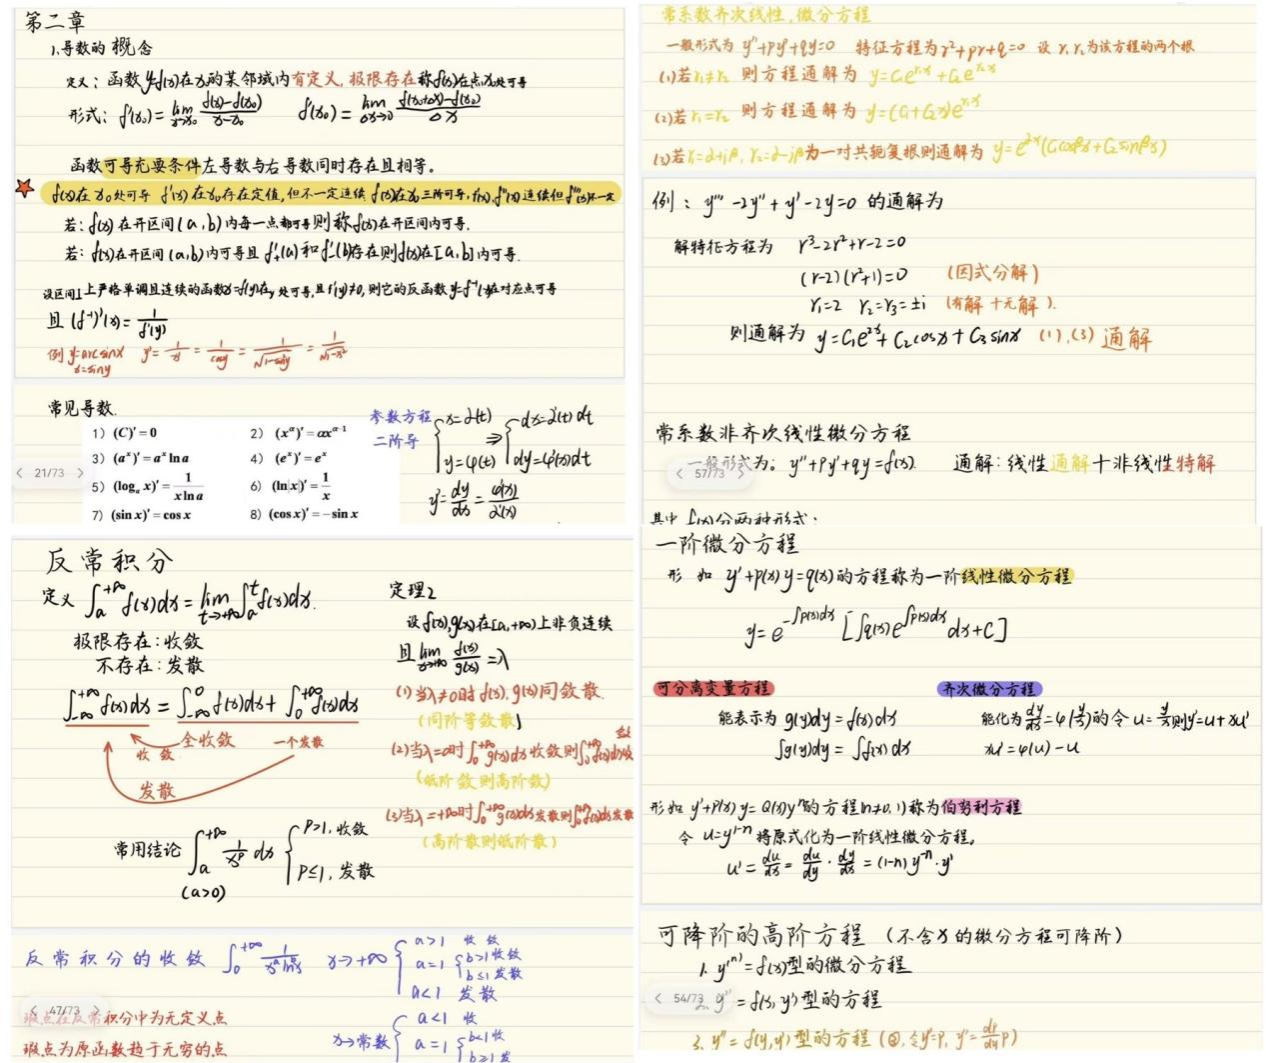 第二章
1.导数的概念
定义：函数y=f(x)在x₀的某邻域内有定义,极限存在称f(x)在点x₀处可导
形式：f'(x₀)=lim x→x₀ (f(x)-f(x₀))/(x-x₀)  f'(x₀)=lim Δx→0 (f(x₀+Δx)-f(x₀))/Δx
函数可导充要条件左导数与右导数同时存在且相等。
f(x)在x₀处可导 f'(x)在x₀存在定值,但不一定连续 f(x)在x₀三阶可导,f(x),f''(x)连续但f'''(x)不一定
若：f(x)在开区间(a,b)内每一点都可导则称f(x)在开区间内可导.
若：f(x)在开区间(a,b)内可导且f'₊(a)和f'₋(b)存在则f(x)在[a,b]内可导.
设区间I上严格单调且连续的函数x=f(y)在y处可导,且f'(y)≠0,则它的反函数y=f⁻¹(x)在对应点可导
且(f⁻¹)'(x)=1/f'(y)
例 y=arcsinx  y'=1/x'=1/cosy=1/√(1-sin²y)=1/√(1-x²)
x=siny
常见导数.
1）(C)'=0  2）(x^α)'=αx^(α-1)
3）(a^x)'=a^x ln a  4）(e^x)'=e^x
5）(log_a x)'=1/(x ln a)  6）(ln|x|)'=1/x
7）(sin x)'=cos x  8）(cos x)'=-sin x
21/73
参数方程
二阶导
{x=2(t) y=φ(t) ⇒ {dx=2'(t)dt dy=φ'(x)dt
y'=dy/dx=φ'(x)/2'(x)
常系数齐次线性,微分方程
一般形式为 y''+py'+qy=0  特征方程为r²+pr+q=0 设r₁r₂为该方程的两个根
(1)若r₁≠r₂ 则方程通解为 y=C₁e^(r₁x)+C₂e^(r₂x)
(2)若r₁=r₂ 则方程通解为 y=(C₁+C₂x)e^(r₁x)
(3)若r₁=α+iβ,r₂=α-iβ为一对共轭复根则通解为 y=e^(αx)(C₁cosβx+C₂sinβx)
例：y'''-2y''+y'-2y=0 的通解为
解特征方程为 r³-2r²+r-2=0
(r-2)(r²+1)=0 (因式分解)
r₁=2 r₂=r₃=±i (有解十无解).
则通解为 y=C₁e^(2x)+C₂cosx+C₃sinx (1),(3)通解
常系数非齐次线性微分方程
一般形式为：y''+py'+qy=f(x). 通解：线性通解+非线性特解
57/73
其中 f(x)分两种形式：
反常积分
定义 ∫ₐ^(+∞) f(x)dx=lim t→+∞ ∫ₐ^t f(x)dx.
极限存在：收敛
不存在：发散
∫₋∞^(+∞) f(x)dx=∫₋∞^0 f(x)dx+∫₀^(+∞) f(x)dx
收敛 全收敛 一个发散
发散
常用结论 ∫ₐ^(+∞) 1/x^p dx {P>1,收敛 P≤1,发散
(a>0)
定理2
设f(x),g(x)在[a,+∞)上非负连续
且lim x→+∞ f(x)/g(x)=λ
(1)当λ≠0时f(x),g(x)同敛散.
(同阶等敛散)
(2)当λ=0时∫₀^(+∞)g(x)dx收敛则∫₀^(+∞)f(x)dx收敛
(低阶敛则高阶敛)
(3)当λ=+∞时∫₀^(+∞)g(x)dx发散则∫₀^(+∞)f(x)dx发散
(高阶散则低阶散)
反常积分的收敛 ∫₀^(+∞) 1/(x^a ln^b x) x→+∞ {a>1 收敛
a=1 {b>1收敛 b≤1发散
a<1 发散
47/73
瑕点在反常积分中为无定义点
瑕点为原函数趋于无穷的点
x→常数 {a<1 收
a=1 {b<1收 b≥1发
一阶微分方程
形如 y'+p(x)y=q(x)的方程称为一阶线性微分方程
y=e^(-∫p(x)dx)[∫q(x)e^(∫p(x)dx)dx+C]
可分离变量方程
能表示为 g(y)dy=f(x)dx
∫g(y)dy=∫f(x)dx
齐次微分方程
能化为dy/dx=φ(y/x)的令u=y/x则y'=u+xu'
xu'=φ(u)-u
形如y'+P(x)y=Q(x)yⁿ的方程(n≠0,1)称为伯努利方程
令 u=y^(1-n)将原式化为一阶线性微分方程,
u'=du/dx=du/dy·dy/dx=(1-n)y^(-n)·y'
可降阶的高阶方程 (不含x的微分方程可降阶)
1. y^(n)=f(x)型的微分方程
2. y''=f(x,y')型的方程
54/73
3. y''=f(y,y')型的方程 (令y'=P, y''=dp/dy P)